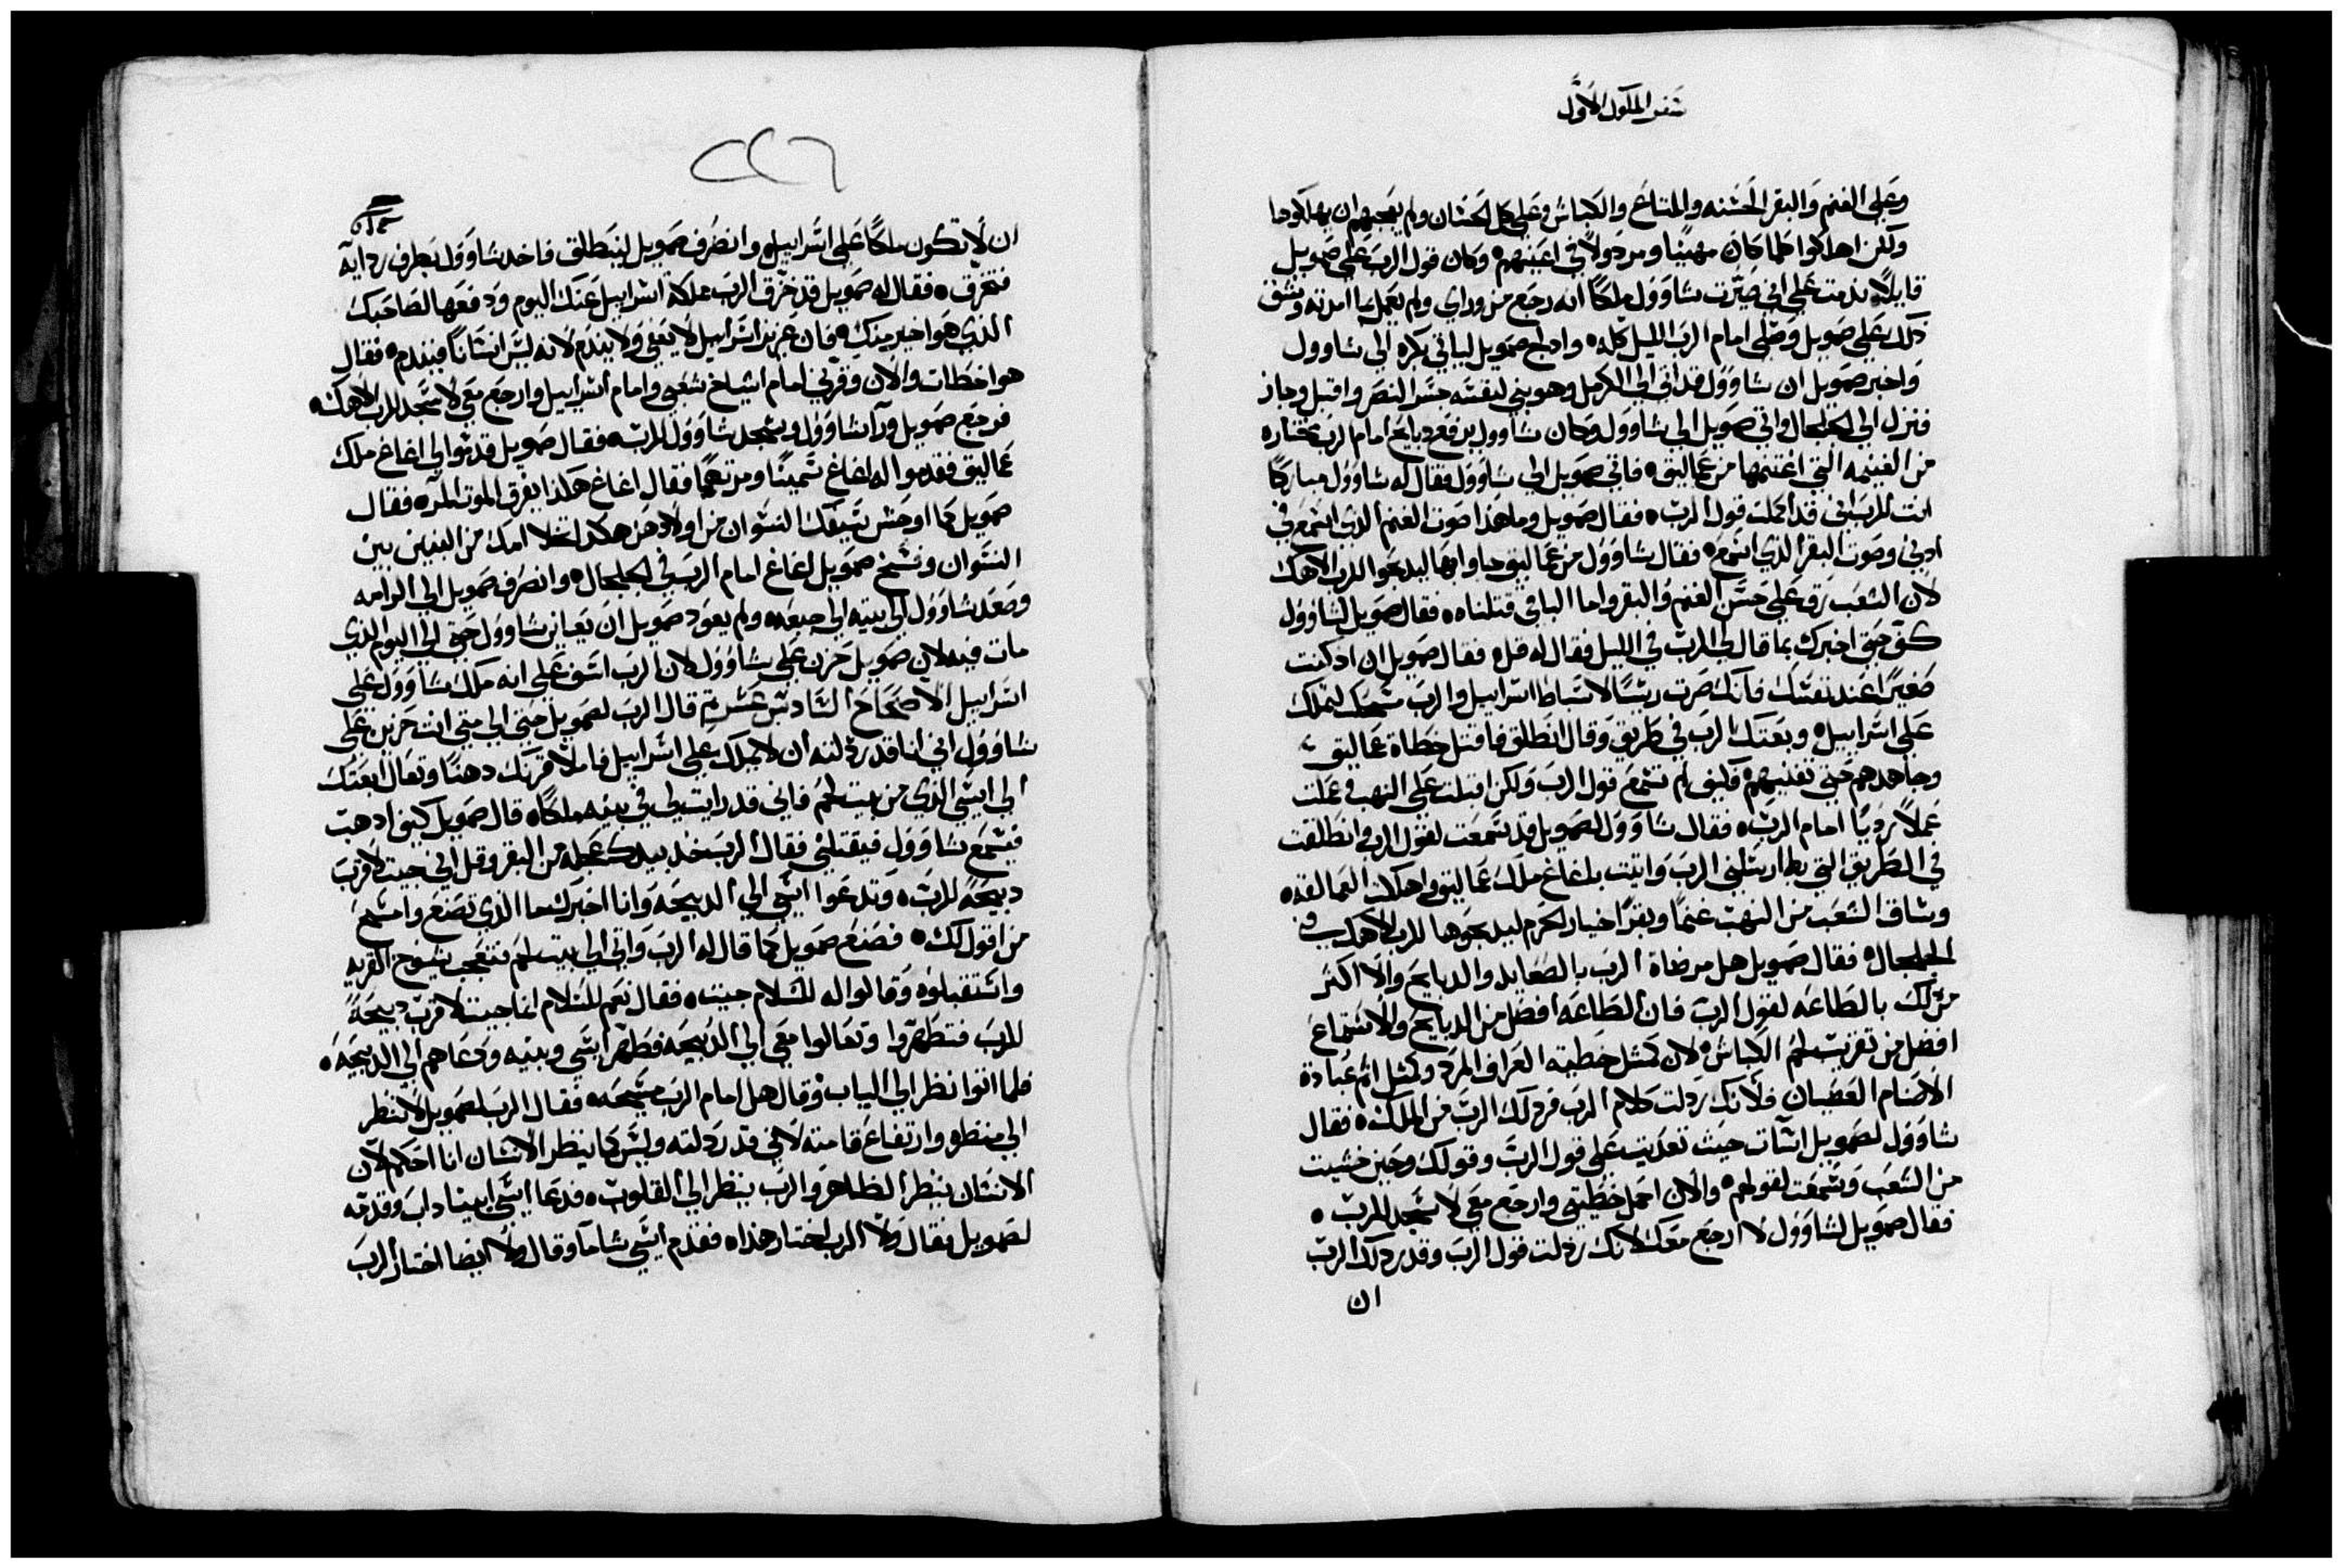 سفر الملوك الاول
وعلى الغنم والبقر الحسنه والمتاع والكباش وعلى كل الحسان ولم يعجبهم ان يهلكوها
ولكن اهلكوا كلما كان مهينًا ومردولاً في اعينهم وكان قول الرب على صمويل
قايلاً ندمت على اني صيّرت شاوول ملكًا انه رجع من وراي ولم يعمل بما امرته وشق
ذلك على صمويل وصلى امام الرب الليل كله وادلج صمويل لياتي بكره الى شاوول
واخبر صمويل ان شاوول قد اتى الى الكرمل وهو يبني لنفسه جسر النصر واقبل وجاز
فنزل الى الجلجال واتى صمويل الى شاوول وكان شاوول يرفع دبايح امام الرب مختاره
من الغنيمه التي اغتنمها من عماليق فاتى صمويل الى شاوول فقال له شاوول مباركًا
انت للرب اني قد اكملت قول الرب فقال صمويل وما هذا صوت الغنم الذي اسمع في
ادني وصوت البقر الذي اسمع فقال شاوول من عماليق جاوا بها ليدبحوا للرب الاهك
لان الشعب رق على حسن الغنم والبقر واما الباقي قتلناه فقال صمويل لشاوول
كفّ حتى اخبرك بما قال لي الرب في الليل فقال له قل فقال صمويل ان اد كنت
صغيرًا عند نفسك فانك صرت ريسًا لاسباط اسراييل والرب مسحك لتملك
على اسراييل وبعتك الرب في طريق وقال انطلق فاقتل خطاة عماليق
وجاهدهم حتى تفنيهم فكيف لم تسمع قول الرب ولكن اقبلت على النهب وعملت
عملاً رديًا امام الرب فقال شاوول لصمويل قد سمعت لقول الرب وانطلقت
في الطريق التي بها ارسلني الرب واتيت باغاغ ملك عماليق واهلكت العمالقه
وساق الشعب من النهب غنمًا وبقرًا اخيار الحرم ليدبحوها للرب الاهك في
الجلجال فقال صمويل هل مرضاة الرب بالصعايد والدبايح والا اكتر
من ذلك بالطاعه لقول الرب فان الطاعه افضل من الدبايح والاستماع
افضل من تقريب لحم الكباش لان كمتل خطيه العراف المرد وكمتل اتم عبادة
الاصنام العصيان فلانك ردلت كلام الرب فردلك الرب من الملك فقال
شاوول لصمويل اسآت حيث تعديت على قول الرب وقولك وحين خشيت
من الشعب وسمعت لقولهم والان احمل خطيتي وارجع معي لاسجد للرب
فقال صمويل لشاوول لا ارجع معك لانك ردلت قول الرب وقد ردلك الرب
ان
ان لا تكون ملكًا على اسراييل وانصرف صمويل لينطلق فاخد شاوول بطرف ردايه
فتخرّق فقال له صمويل قد خرّق الرب مملكة اسراييل عنك اليوم ودفعها لصاحبك
الذي هو اخير منك فان عزيز اسراييل لا يعفي ولا يندم لانه ليس انسانًا فيندم فقال
هو اخطات والان وقرني امام اشياخ شعبي وامام اسراييل وارجع معي لاسجد للرب الاهك
فرجع صمويل ورآ شاوول وسجد شاوول للرب فقال صمويل قدموا الي اغاغ ملك
عماليق فقدموا له اغاغ سمينًا ومرتعمًا فقال اغاغ هكذا يفرق الموت المر فقال
صمويل كما اوحش سيفك النسوان من اولادهن هكدا تخلا امك من البنين بين
النسوان وفسخ صمويل اغاغ امام الرب في الجلجال وانصرف صمويل الى الرامه
وصعد شاوول الى بيته الى جبعه ولم يعود صمويل ان يعاين شاوول حتى الى اليوم الذي
مات فيه لان صمويل حزن على شاوول لان الرب اسف على انه ملك شاوول على
اسراييل الاصحاح السادس عشر ثم قال الرب لصمويل حتى الى متى انت حزين على
شاوول اني انا قد ردلته ان لا يملك على اسراييل فاملا قرنك دهنًا وتعال ابعتك
الى ايسي الذي من بيت لحم فاني قد رايت لي في بنيه ملكًا قال صمويل كيف ادهب
فيسمع شاوول فيقتلني فقال الرب خد بيدك عجله من البقر وقل اني جيت لاقرب
دبيحةً للرب وتدعوا ايسي الى الدبيحه وانا اخبرك بما الذي تصنع وامسح
من اقول لك فصنع صمويل كما قال له الرب واتى الى بيت لحم فتعجب شيوخ القريه
واستقبلوه وقالوا له للسلام جيت فقال نعم للسلام انما جيت لاقرب دبيحةً
للرب فتطهّروا وتعالوا معي الى الدبيحه فطهر ايسي وبنيه ودعاهم الى الدبيحه
فلما اتوا نظر الى الياب وقال هل امام الرب مسيحه فقال الرب لصمويل لا تنظر
الى منظره وارتفاع قامته لاني قد ردلته وليس كما ينظر الانسان انا احكم لان
الانسان ينظر الظاهر والرب ينظر الى القلوب فدعا ايسي ابيناداب وقدمه
لصمويل فقال ولا الرب اختار هذا فقدم ايسي شاما وقال ولا ايضا اختار الرب